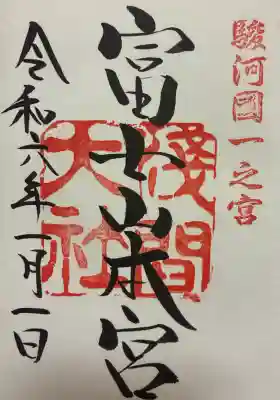 駿河國一之宮
富士山本宮
淺間大社
令和六年一月一日